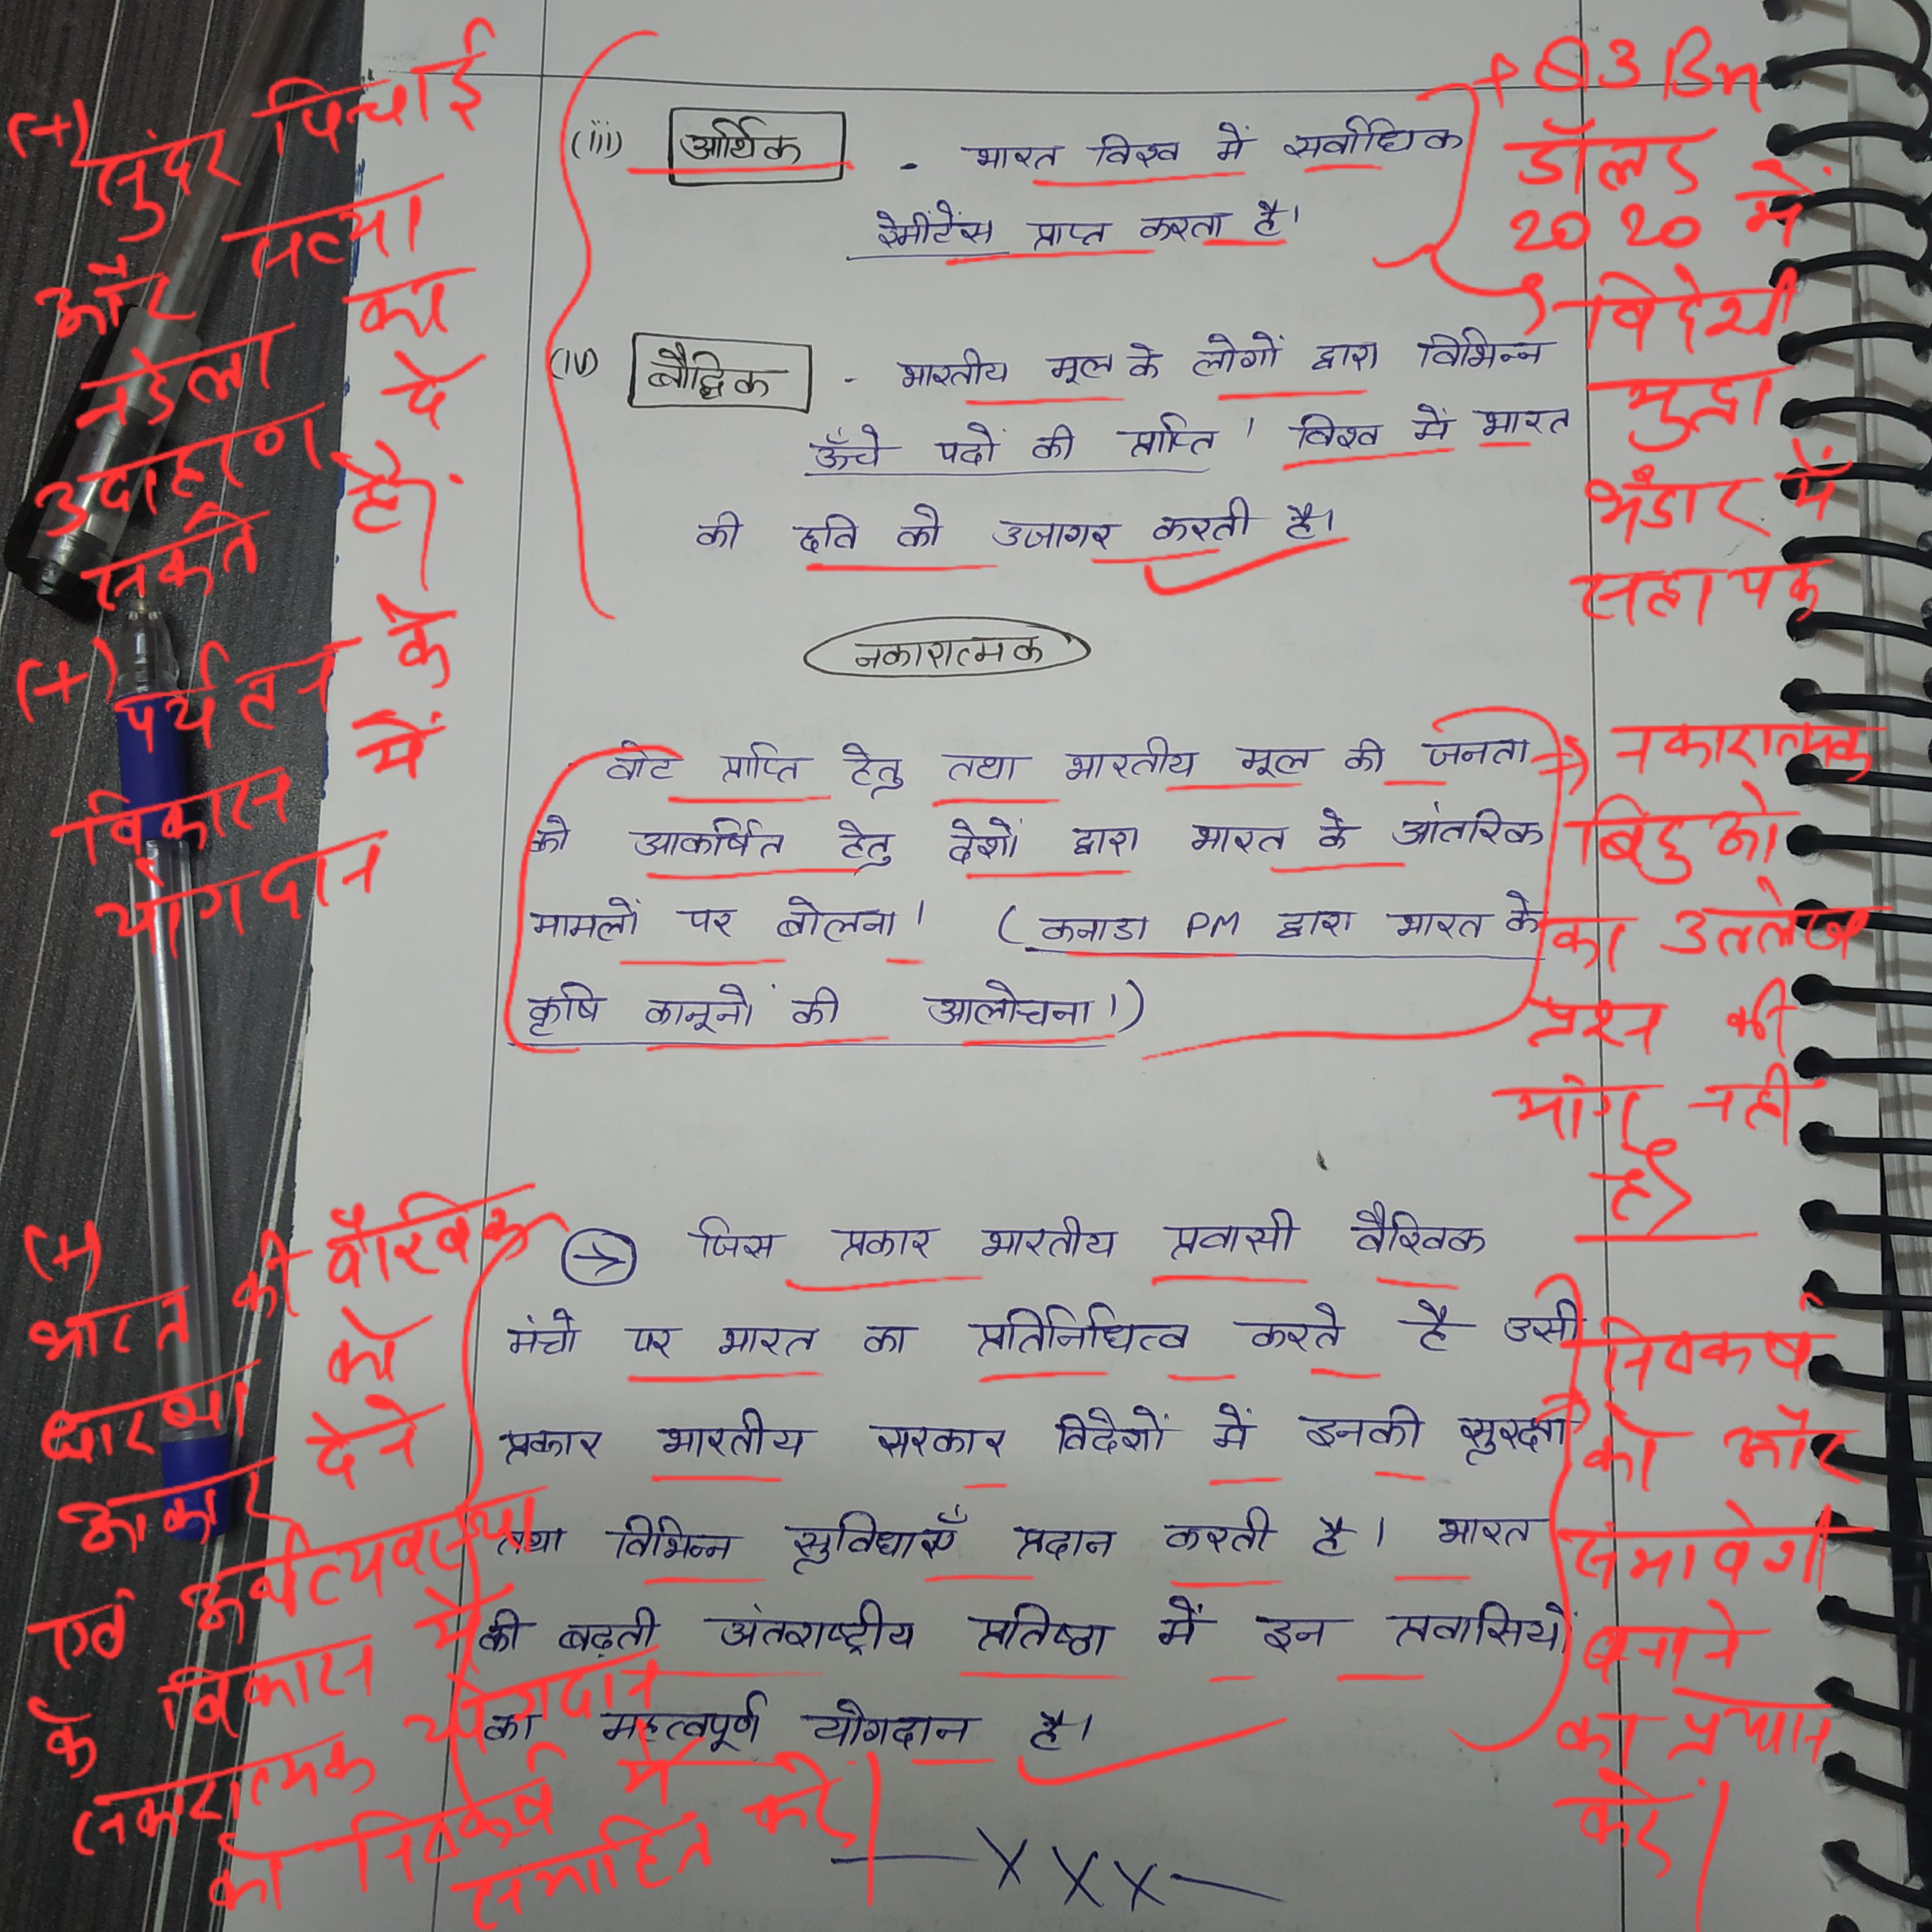 (iii) आर्थिक - भारत विश्व में सर्वाधिक
रेमीटेंस प्राप्त करता है।
(iv) बौद्धिक - भारतीय मूल के लोगों द्वारा विभिन्न
ऊँचे पदों की प्राप्ति। विश्व में भारत
की छवि को उजागर करती है।
नकारात्मक
वोट प्राप्ति हेतु तथा भारतीय मूल की जनता
को आकर्षित हेतु देशों द्वारा भारत के आंतरिक
मामलों पर बोलना। (कनाडा PM द्वारा भारत के
कृषि कानूनों की आलोचना।)
→ जिस प्रकार भारतीय प्रवासी वैश्विक
मंचो पर भारत का प्रतिनिधित्व करते है उसी
प्रकार भारतीय सरकार विदेशों में इनकी सुरक्षा
तथा विभिन्न सुविधाएँ प्रदान करती है। भारत
की बढ़ती अंतराष्ट्रीय प्रतिष्ठा में इन प्रवासियों
का महत्वपूर्ण योगदान है।
—XXX—
(+) सुंदर पिचाई
और सत्या
नडेला का
उदाहरण दे
सकते हैं।
(+) पर्यटन के
विकास में
योगदान
(+)
भारत की वैश्विक
धारणा को
आकार देने
एवं अर्थव्यवस्था
के विकास में
सकारात्मक योगदान
को निष्कर्ष में
समाहित करें।
3 Bn
डॉलर
2020 में
विदेशी
मुद्रा
भंडार में
सहायक
⇒ नकारात्मक
बिंदुओ
का उल्लेख
प्रश्न की
मांग नही
है
निष्कर्ष
को और
समावेशी
बनाने
का प्रयास
करें।